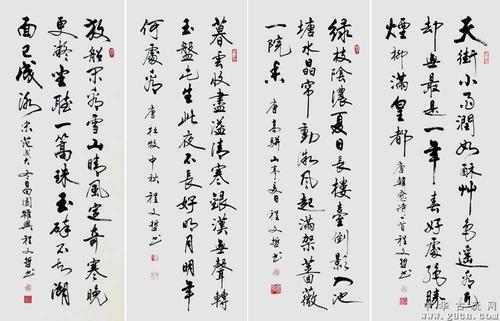 天街小雨潤如酥艸色遥看近
却無最是一年春好處絶勝
煙柳滿皇都 唐韓愈詩一首 程文哲书
綠枝陰濃夏日長樓臺倒影入池
塘水晶帘動微風起滿架薔薇
一院香 唐高駢山亭夏日 程文哲书
暮雲收盡溢清寒銀漢無聲轉
玉盤此生此夜不長好明月明年
何處看 唐杜牧中秋 程文哲书
放船看雪山晴風定奇寒晚
更凝坐聽一篙珠玉碎不知湖
面已成冰 宋范成大冬日田園雜興 程文哲书
华古玩网
www.gucn.com